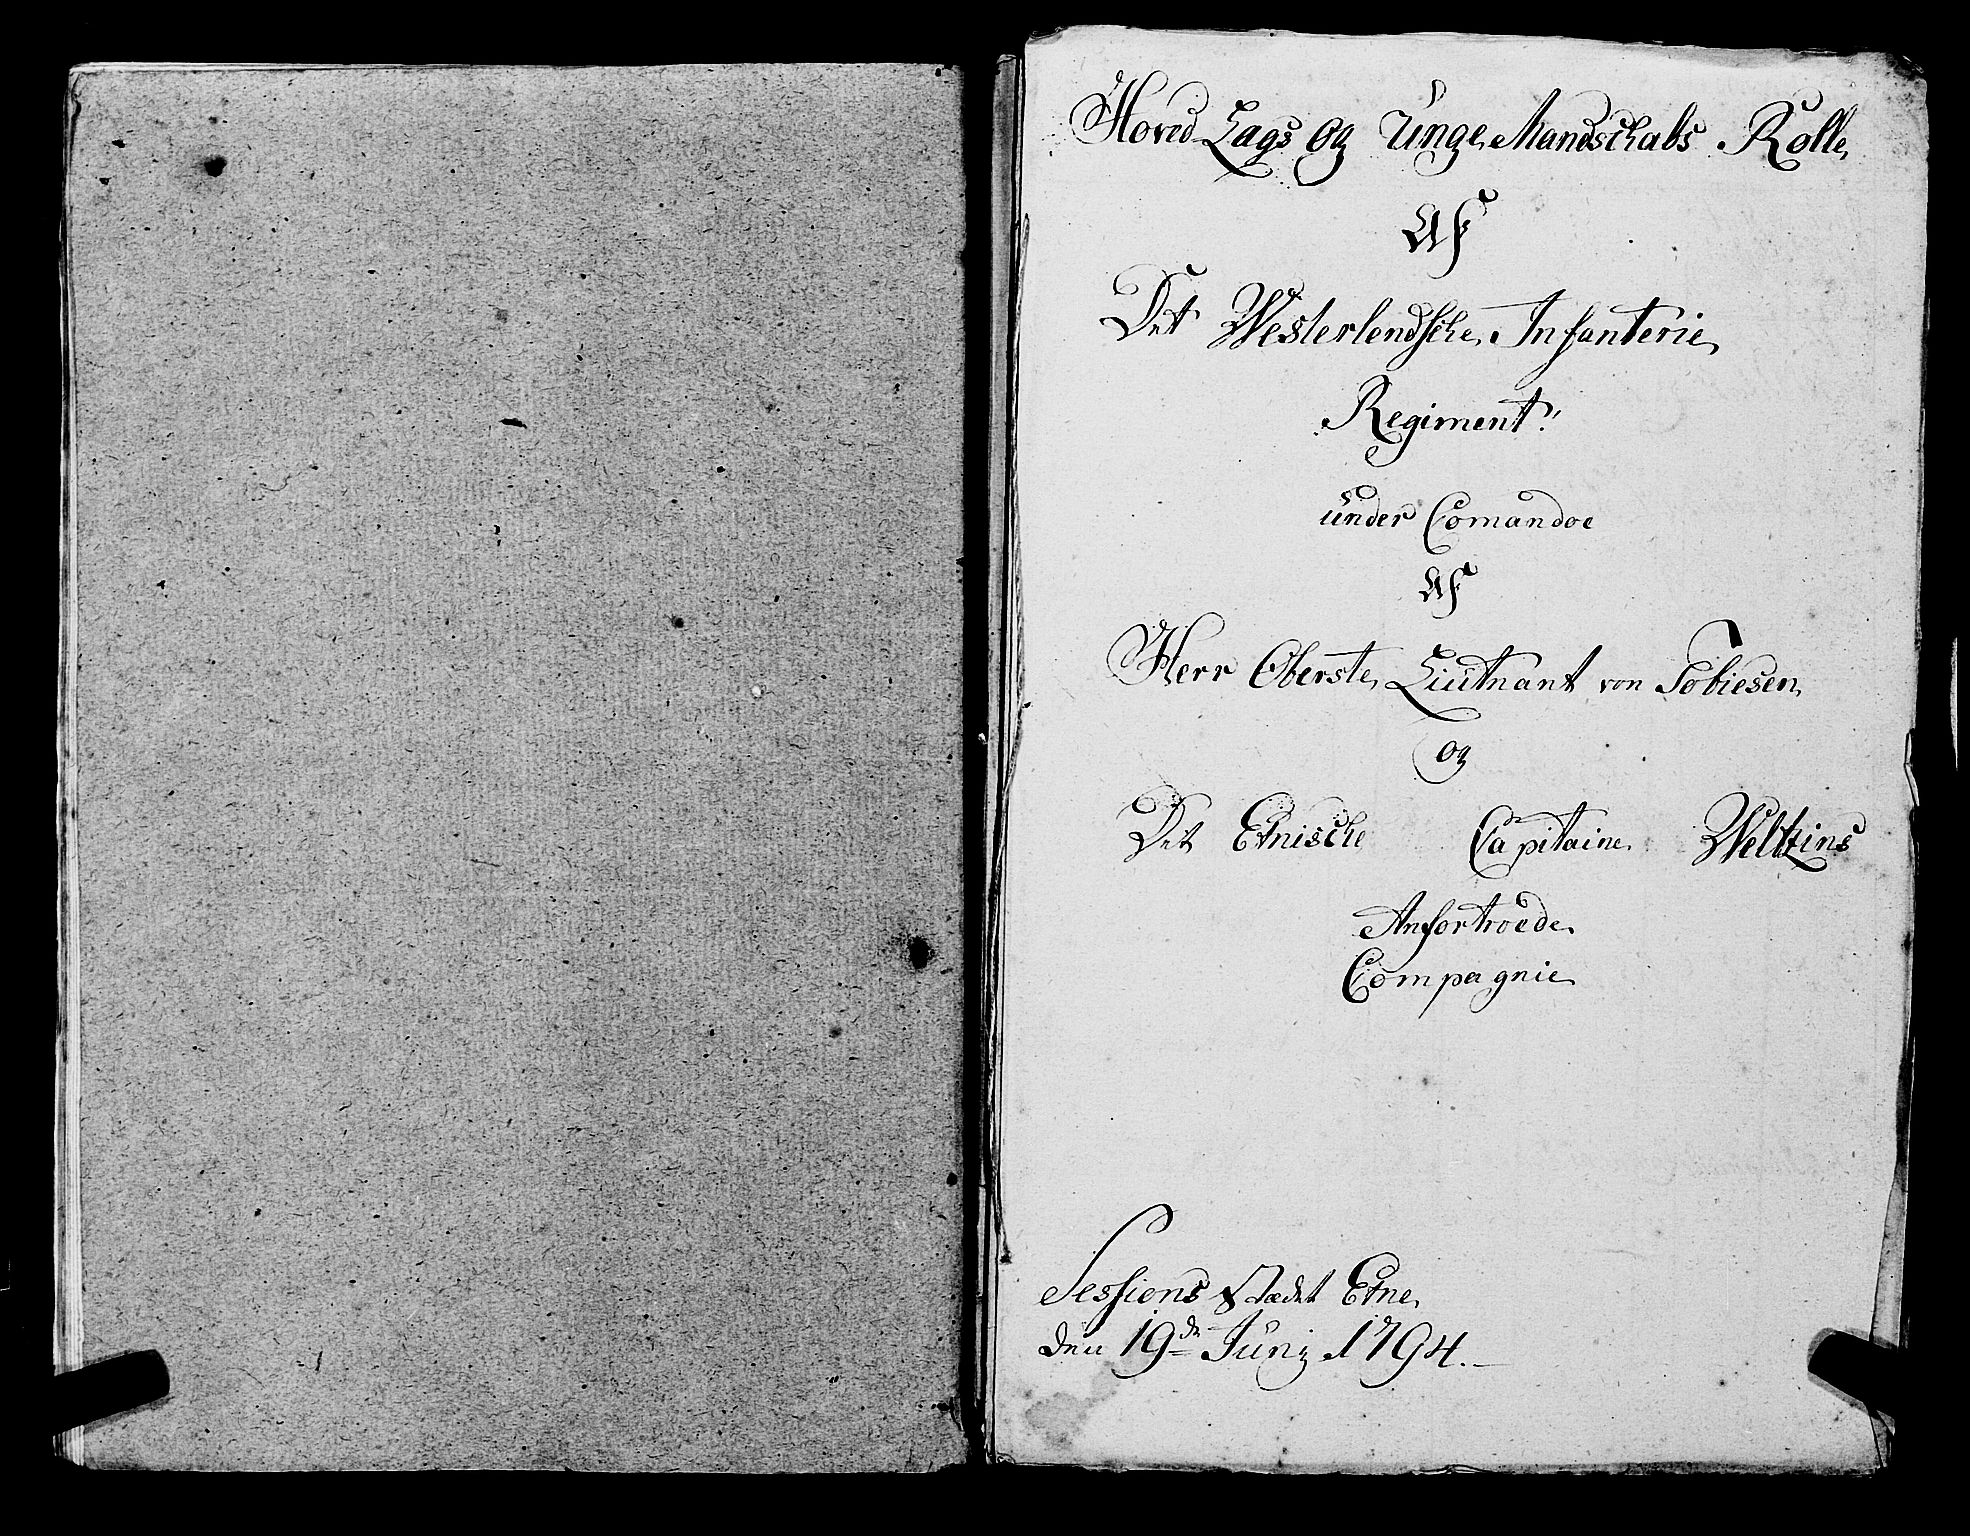 Hoved Lags Og Unge Mandschabs Rolle
Af
Det Westerlendsche Infanterie
Regiment!
under Comandoe
Af
Herr Oberste Liutnant von Tobiesen
og
Det Etnische Capitaine Weltzins
Anfortroede
Compagnie
Sessions Stædet Etne
den 19de Junj 1794.